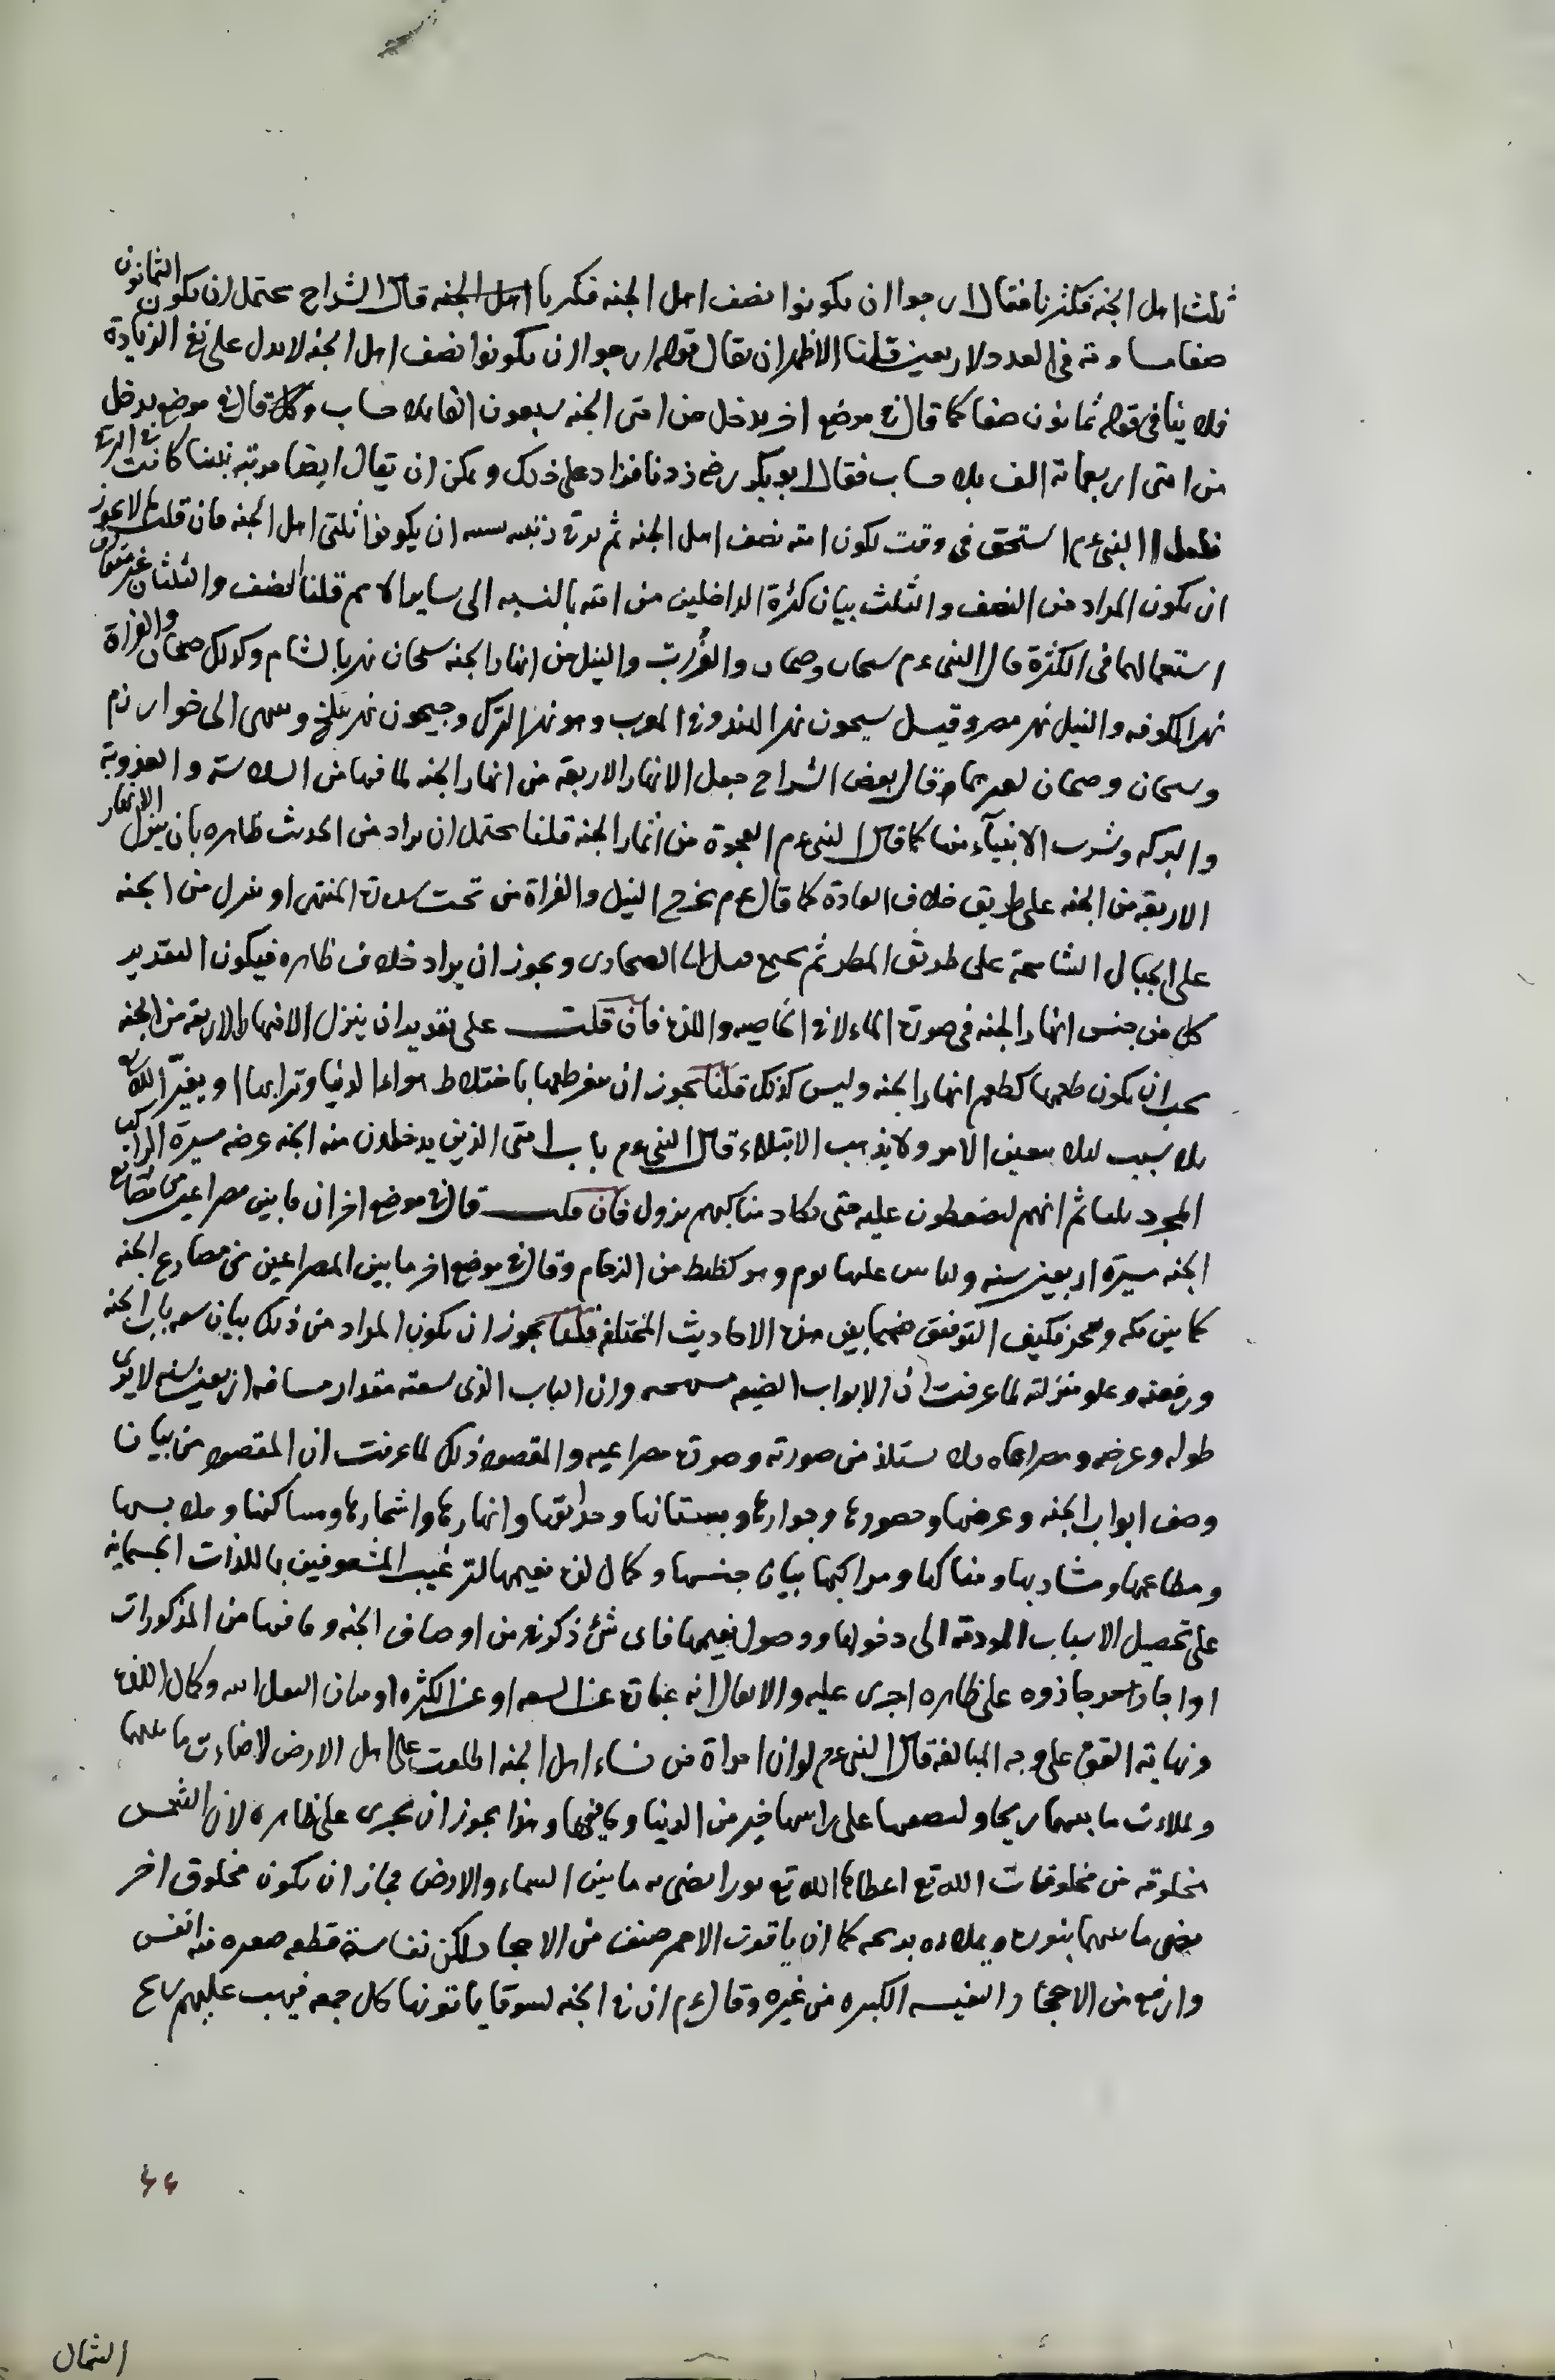 ثلث اهل الجنه فكثرنا فقال ارجوا ان يكونوا نصف اهل الجنه فكبرنا اهل الجنه قال الشراح يحتمل ان يكون الثمانون
صفا مساويه فى العدد لاربعين قلنا الاظهر ان يقال قوله ارجوا ان يكونوا نصف اهل الجنه لا يدل على نفى الزيادة
فلا ينافى قوله ثمانون صفا كما قال فى موضع اخر يدخل من امتى الجنه سبعون الفا بلا حساب وكذا قال فى موضع يدخل
من امتى اربعمائة الف بلا حساب فقال ابو بكر رض زدنا فزاد على ذلك ويمكن ان يقال ايضا مرتبة نبينا كانت فى الترقى
النبى ع م استحق فى وقت يكون امته نصف اهل الجنه ثم ان يكونوا ثلثى اهل الجنه فان قلت لم لا يجوز
ان يكون المراد من النصف والثلث بيان كثرة الداخلين من امته بالنسبه الى ساير الامم قلنا النصف والثلثان غير متعارف
استعمالهما فى الكثرة قال النبى ع م سيحان وجيحان والفرات والنيل من انهار الجنه سيحان نهر بالشام وكذلك جيحان والفراة
نهر الكوفه والنيل نهر مصر وقيل سيحون نهر الهند وجيحون نهر بلخ وينتهى الى خوارزم
وسيحان وجيحان وقال بعض الشراح جعل الانهار الاربعة من انهار الجنه لما فيها من السلاسة والعذوبة
والبركه وشرب الانبيآء منها كما قال النبى ع م العجوة من اثمار الجنه قلنا يحتمل ان يراد من الحديث ظاهره بان ينزل الانهار
الاربعة من الجنه على طريق خلاف العادة كما قال ع م يخرج النيل والفراة من تحت سدرة المنتهى او ينزل من الجنه
على الجبال الشامخة على طريق المطر ثم يجمع الصحارى ويجوز ان يراد خلاف ظاهره فيكون التقدير
كل من جنس انهار الجنه فى صورة الماء لا فى الخاصيه واللذة فان قلت على تقدير ان ينزل الانهار الاربعة من الجنه
يجب ان يكون طعمها كطعم انهار الجنه وليس كذلك قلنا يجوز ان يتغير طعمها باختلاط هواء الدنيا وترابها او يغير الله تع
بلا سبب لئلا يتعين الامر ولا يذهب الابتلاء قال النبى ع م باب امتى الذين يدخلون منه الجنه عرضه مسيرة الراكب
المجود ثلثا ثم انهم ليضغطون عليه حتى تكاد مناكبهم تزول فان قلت قال فى موضع اخر ان ما بين مصراعين من مصاريع
الجنه مسيرة اربعين سنه وليأتين عليها يوم وهو كظيظ من الزحام وقال فى موضع اخر ما بين المصراعين من مصاريع الجنه
كما بين مكه وهجر فكيف التوفيق بين هذه الاحاديث المختلفة قلنا يجوز ان يكون المراد من ذلك بيان سعه باب الجنه
ورفعته وعلو منزلته لما عرفت ان الابواب الضيقه وان الباب الذى سعته مقدار مسافه اربعين سنه لا يرى
طوله وعرضه ومصراعاه فلا يستلذ من صورته وصورة مصراعيه والمقصود ذلك لما عرفت ان المقصود من بيان
وصف ابواب الجنه وعرضها وحورها وجوارها وبستانها وحدائقها وانهارها واشجارها ومساكنها وملابسها
ومطاعمها ومشاربها ومناكحها ومراكبها بيان جنسها وكمال لذة نعيمها لترغيب المشعوفين باللذات الجسمانية
على تحصيل الاسباب المؤديه الى دخولها ووصول نعيمها فاى شئ ذكر من اوصاف الجنه وما فيها من المذكورات
على ظاهره اجرى عليه والا يقال انه عبارة عن السعه او عن الكثره او وكمال اللذة
ونهاية القوة على وجه المبالغة قال النبى ع م لو ان امراة من نساء اهل الجنه اطلعت على اهل الارض لاضاءت ما بينهما
ولملاءت ما بينهما ريحا ولنصيفها على راسها خير من الدنيا وما فيها وهذا يجوز ان يجرى على ظاهره لان الشمس
مخلوقه من مخلوقات الله تع اعطاها الله تع نورا يضئ به ما بين السماء والارض فجاز ان يكون مخلوق اخر
يضئ ما بينهما بنوره ويملاءه بريحه كما ان ياقوت الاحمر صنف من الاحجار لكن نفاسة قطعه صغيره منه انفس
وارفع من الاحجار النفيسه الكبيره من غيره وقال ع م ان فى الجنه لسوقا ياتونها كل جمعه فيهب عليهم ريح
٤٤
الشمال